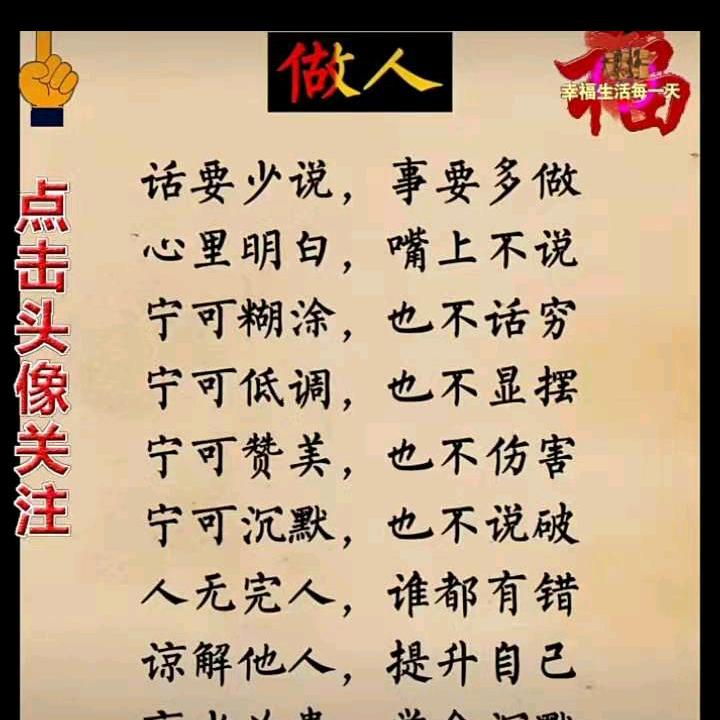 做人
福
幸福生活每一天
点击头像关注
话要少说，事要多做
心里明白，嘴上不说
宁可糊涂，也不话穷
宁可低调，也不显摆
宁可赞美，也不伤害
宁可沉默，也不说破
人无完人，谁都有错
谅解他人，提升自己